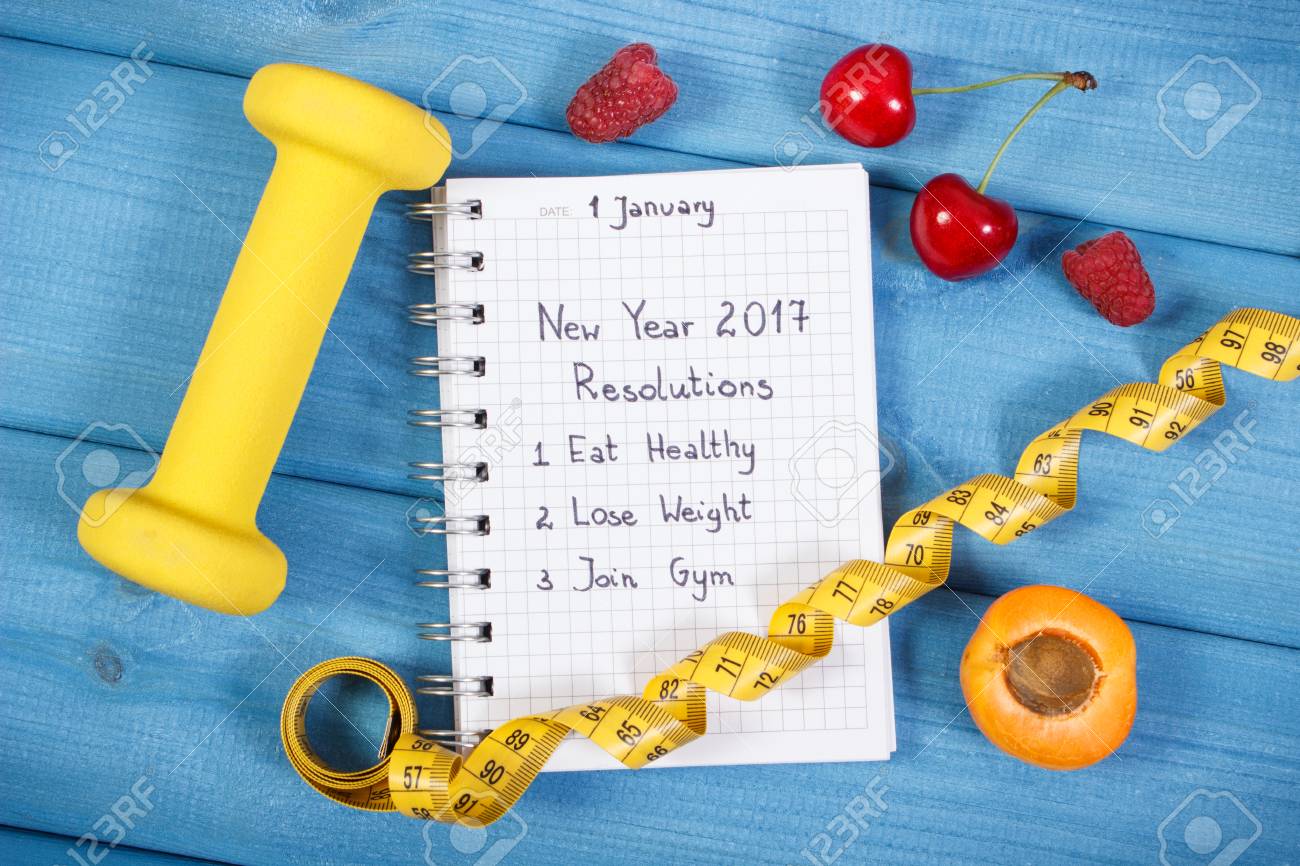 DATE: 1 January
New Year 2017
Resolutions
1 Eat Healthy
2 Lose Weight
3 Join Gym
97 98
56
90 91 92
63
83 84 85
69 70
77 78
76
71 72
82
64 65 66
89 90 91
57
58
123RF